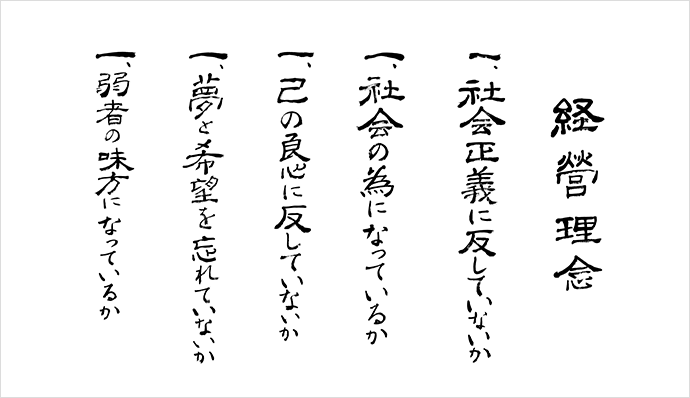 経営理念
一、社会正義に反していないか
一、社会の為になっているか
一、己の良心に反していないか
一、夢と希望を忘れていないか
一、弱者の味方になっているか